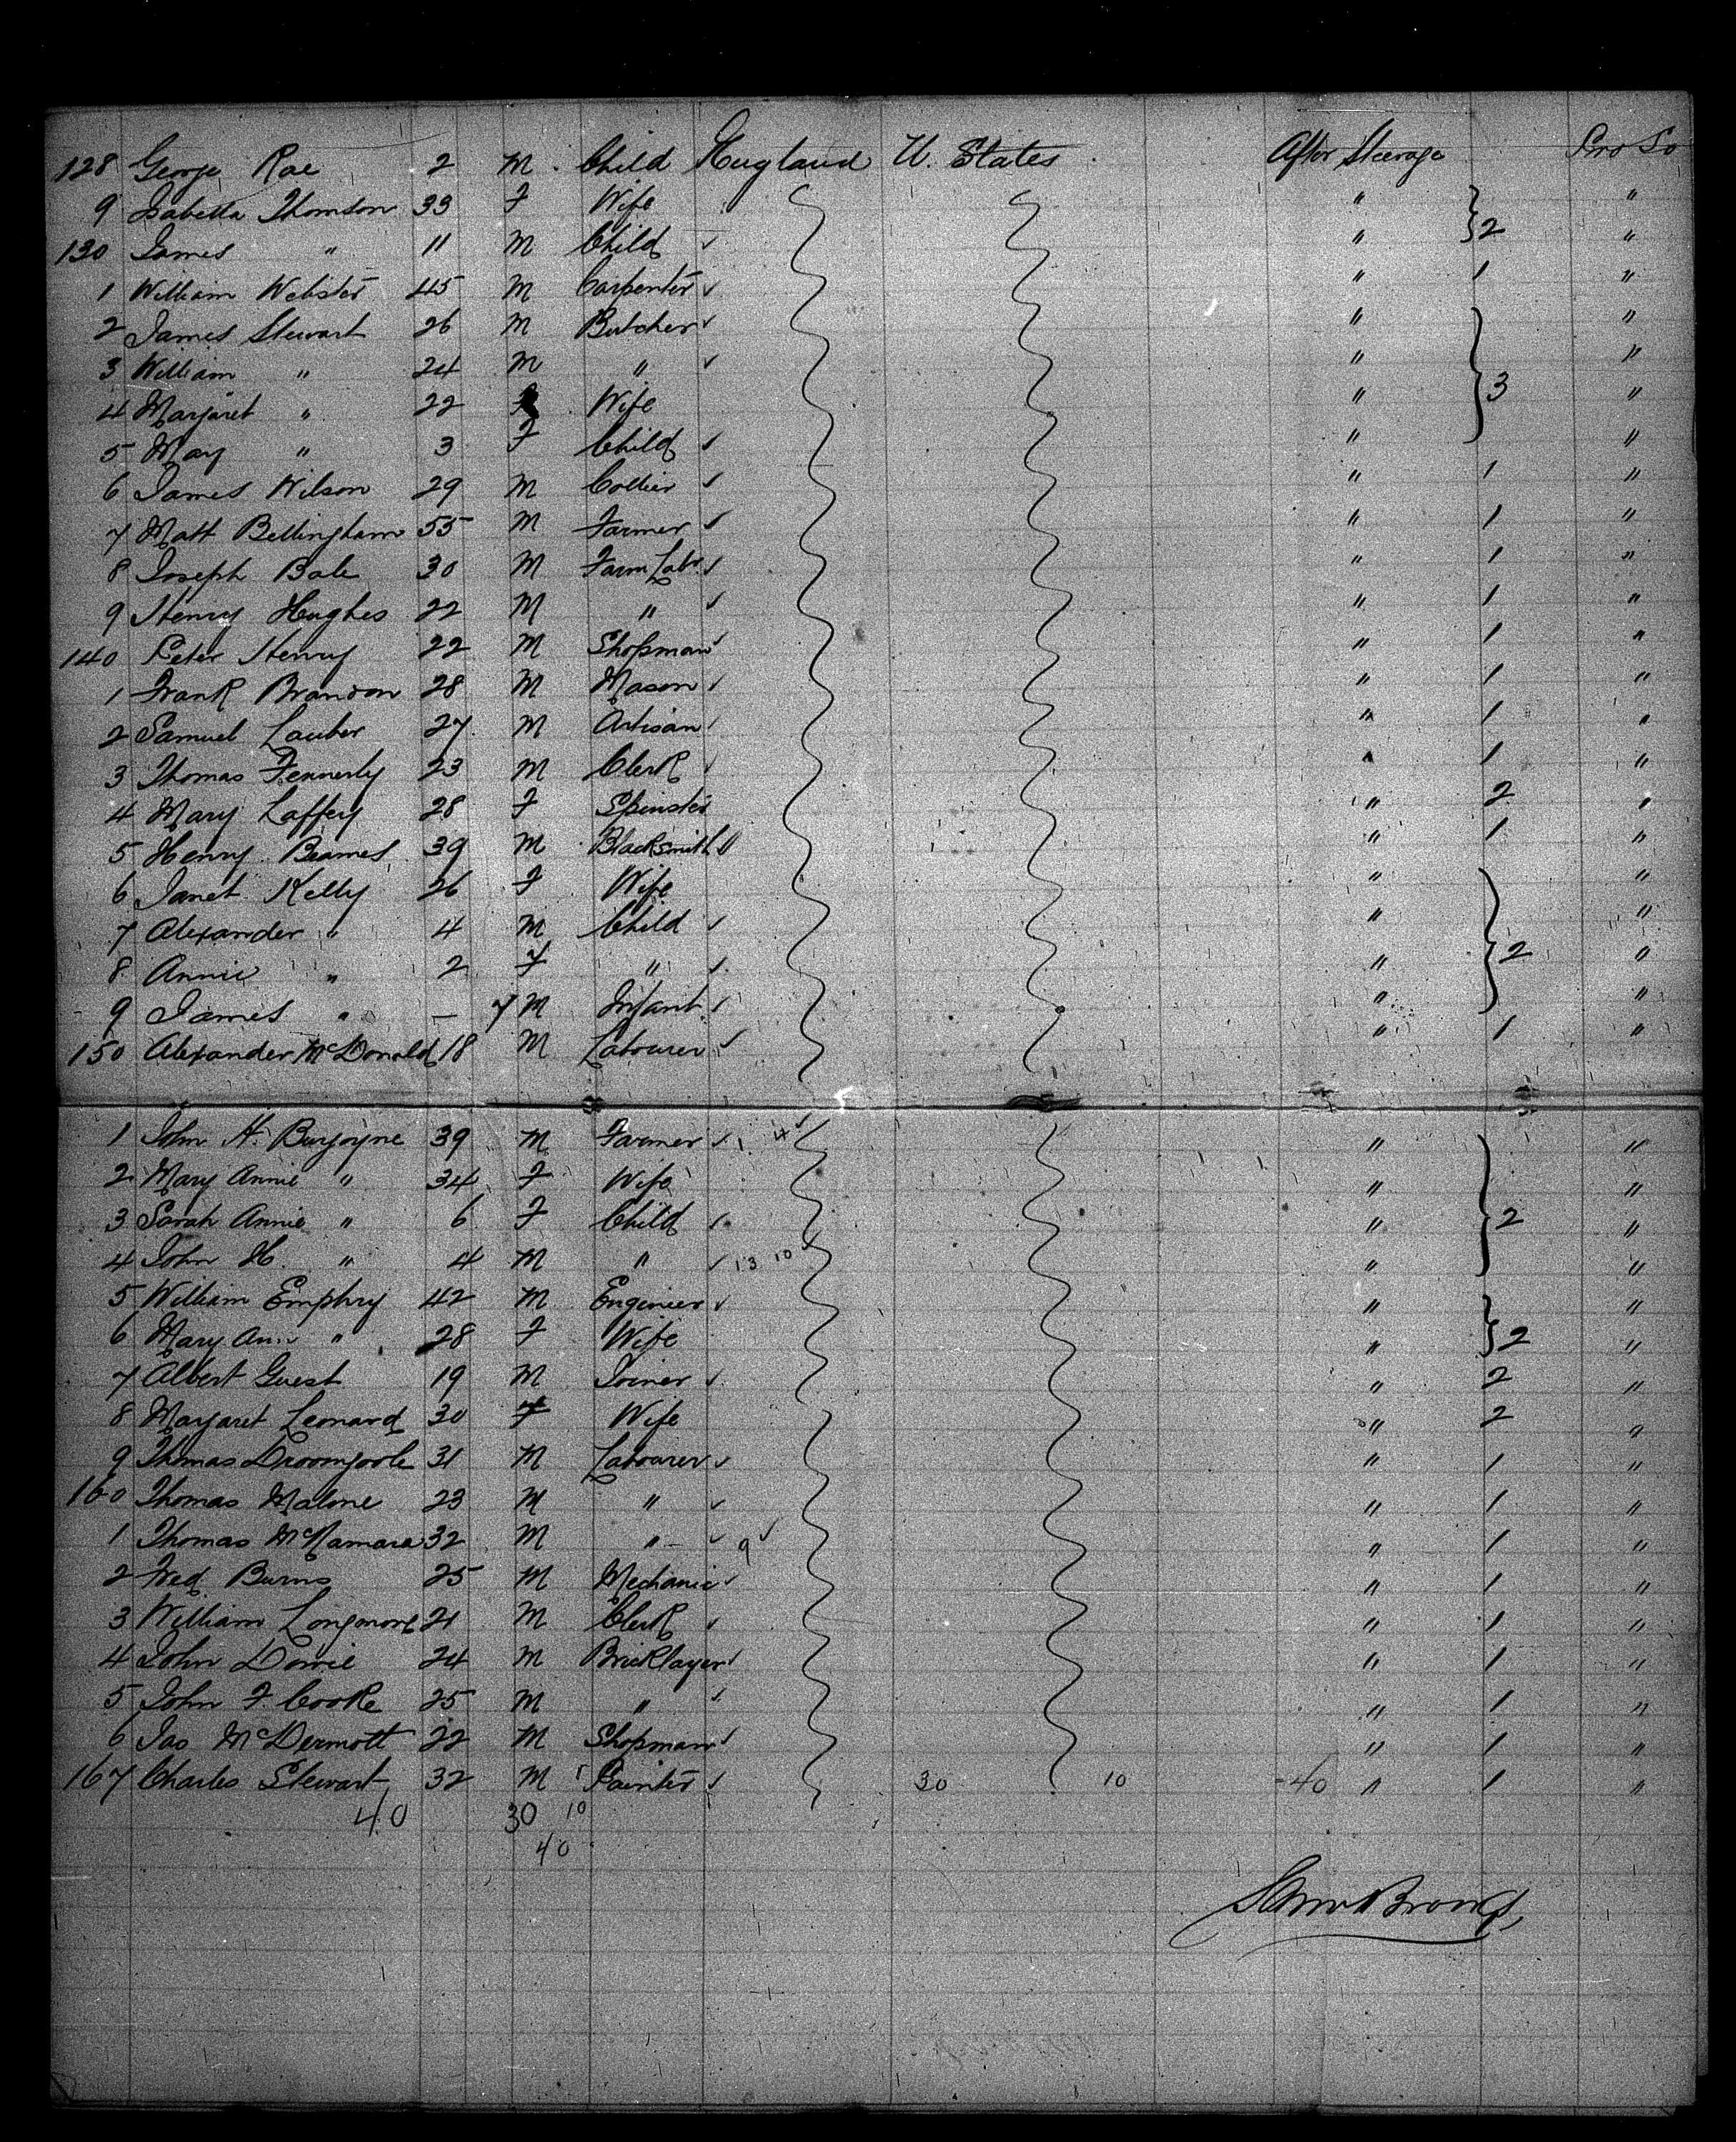 128 George Rae 2 M. Child England U. States After Steerage Pro So
9 Isabella Thomson 33 F Wife " "
130 James " 11 M Child ✓ " } 2 "
1 William Webster 45 M Carpenter ✓ " 1 "
2 James Stewart 26 M Butcher ✓ " "
3 William " 24 M " ✓ " "
4 Margaret " 22 F Wife " } 3 "
5 May " 3 F Child ✓ " "
6 James Wilson 29 M Collier ✓ " 1 "
7 Matt Bellingham 55 M Farmer ✓ " 1 "
8 Joseph Bale 30 M Farm Labr. ✓ " 1 "
9 Henry Hughes 22 M " ✓ " 1 "
140 Peter Henry 22 M Shopman ✓ " 1 "
1 Frank Brandon 28 M Mason ✓ " 1 "
2 Samuel Lauber 27 M Artisan ✓ " 1 "
3 Thomas Fennerly 23 M Clerk ✓ " 1 "
4 Mary Laffery 28 F Spinster " 2 "
5 Henry Beames 39 M Blacksmith ✓ " 1 "
6 Janet Kelly 26 F Wife " "
7 Alexander " 4 M Child ✓ " "
8 Annie " 2 F " ✓ " } 2 "
9 James " — 7 M Infant ✓ " "
150 Alexander McDonald 18 M Labourer ✓ " 1 "
1 John H. Burgoyne 39 M Farmer ✓ 1 4 ✓ " "
2 Mary Annie " 34 F Wife " "
3 Sarah Annie " 6 F Child ✓ " } 2 "
4 John H. " 4 M " ✓ 13 10 ✓ " "
5 William Emphry 42 M Engineer ✓ " "
6 Mary Ann " 28 F Wife " } 2 "
7 Albert Guest 19 M Joiner ✓ " 2 "
8 Margaret Leonard 30 F Wife " 2 "
9 Thomas Droomgoole 31 M Labourer ✓ " 1 "
160 Thomas Malone 23 M " ✓ " 1 "
1 Thomas McNamara 32 M " ✓ 9 ✓ " 1 "
2 Fred Burns 25 M Mechanic ✓ " 1 "
3 William Longmore 21 M Clerk ✓ " 1 "
4 John Dowie 24 M Bricklayer ✓ " 1 "
5 John F. Cooke 25 M " ✓ " 1 "
6 Jas McDermott 22 M Shopman ✓ " 1 "
167 Charles Stewart 32 M Painter ✓ 30 10 -40 " 1 "
40 30 10
40